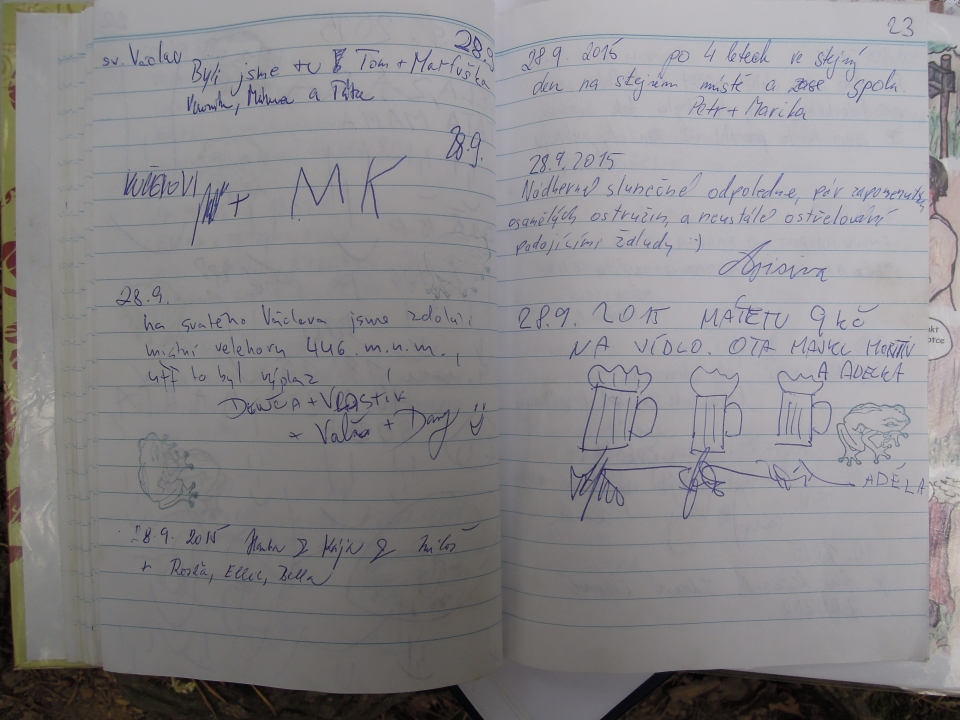 28.9.
sv. Václav
Byli jsme tu Tom + Martuška
a Táta
28.9.
KUČEROVI + MK
28.9.
na svatého Václava jsme zdolali
místní velehory 446 m.n.m.,
uff to byl výplaz!
DENČA + VLASTÍK
+ Valča + Dany
28.9. 2015 & Kája & Miloš
+ Rosťa, Ellie, Bella
23
28.9. 2015 po 4 letech ve stejný
den na stejném místě a zase spolu.
Petr + Marika
28.9.2015
Nádherné slunečné odpoledne, pár zapomenutých
osamělých ostružin, a neustálé ostřelování
padajícími žaludy :)
28.9. 2015 MÁTETU 9 kč
NA VÍDLO. OTA MAJKL MARTIN
A ADÉLKA
ADÉLA